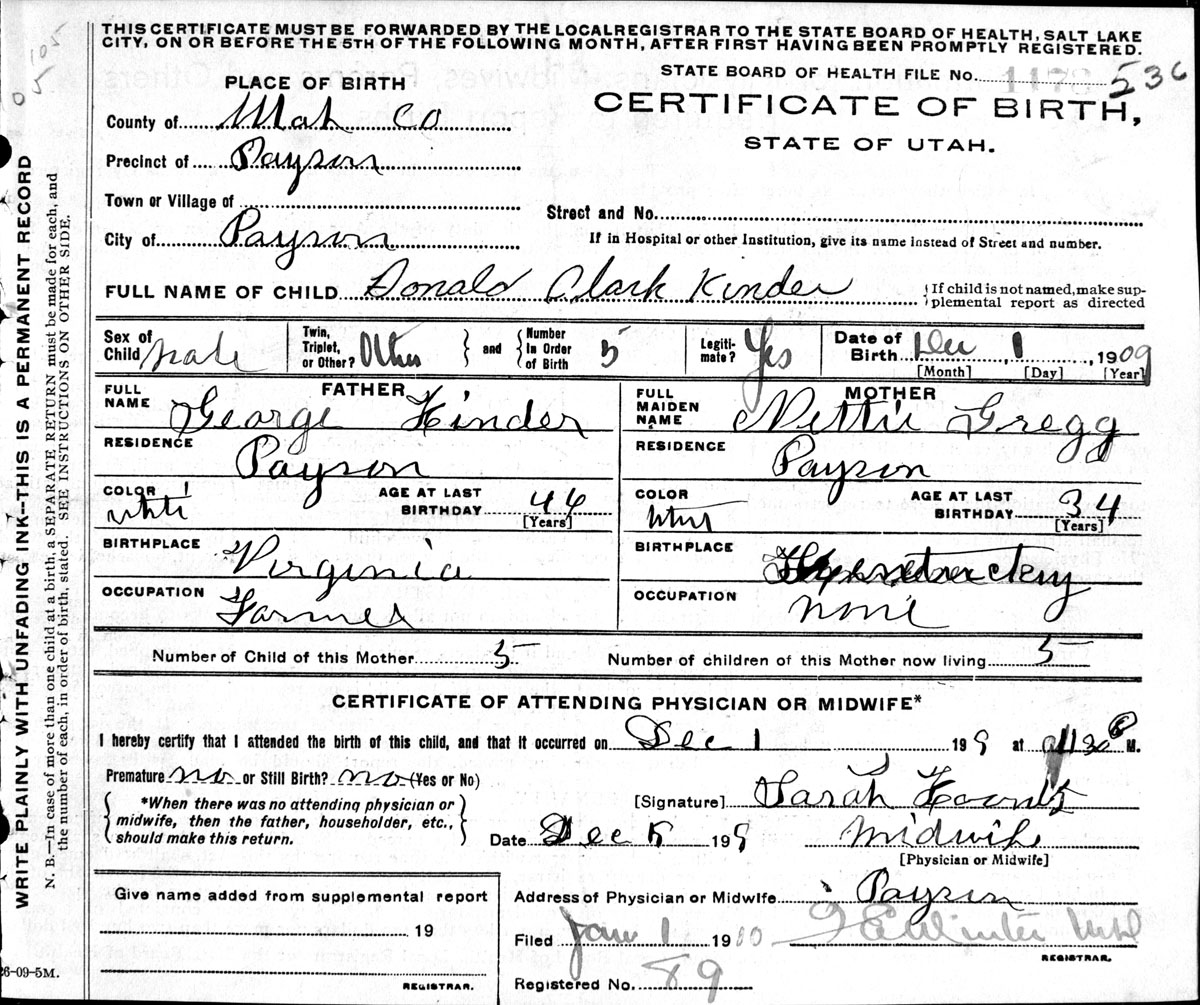 THIS CERTIFICATE MUST BE FORWARDED BY THE LOCAL REGISTRAR TO THE STATE BOARD OF HEALTH, SALT LAKE
CITY, ON OR BEFORE THE 5TH OF THE FOLLOWING MONTH, AFTER FIRST HAVING BEEN PROMPTLY REGISTERED.
105
05
STATE BOARD OF HEALTH FILE No. 536
PLACE OF BIRTH
CERTIFICATE OF BIRTH,
STATE OF UTAH.
County of Utah Co
Precinct of Payson
Town or Village of
Street and No.
City of Payson
If in Hospital or other Institution, give its name instead of Street and number.
FULL NAME OF CHILD Donald Clark Kinder
{If child is not named, make sup-
plemental report as directed
Sex of Child male
Twin, Triplet, or Other? Other } and { Number In Order of Birth 5
Legiti-mate? Yes
Date of Birth Dec 1, 1909
[Month] [Day] [Year]
FATHER
FULL NAME George Kinder
MOTHER
FULL MAIDEN NAME Nettie Gregg
RESIDENCE Payson
RESIDENCE Payson
COLOR white AGE AT LAST BIRTHDAY 44 [Years]
COLOR white AGE AT LAST BIRTHDAY 34 [Years]
BIRTHPLACE Virginia
BIRTHPLACE Kentuckey
OCCUPATION Farmer
OCCUPATION None
Number of Child of this Mother 5 Number of children of this Mother now living 5
CERTIFICATE OF ATTENDING PHYSICIAN OR MIDWIFE*
I hereby certify that I attended the birth of this child, and that it occurred on Dec 1 199 at 1130 P M.
Premature no or Still Birth? no (Yes or No)
{ *When there was no attending physician or
midwife, then the father, householder, etc.,
should make this return. }
[Signature] Sarah Koontz
Date Dec 199 Midwife
[Physician or Midwife]
Give name added from supplemental report
19
REGISTRAR.
Address of Physician or Midwife Payson
Filed Jan 1 1910 Winter
REGISTRAR.
Registered No. 89
26-09-5M.
WRITE PLAINLY WITH UNFADING INK--THIS IS A PERMANENT RECORD
N. B.—In case of more than one child at a birth, a SEPARATE RETURN must be made for each, and
the number of each, in order of birth, stated. SEE INSTRUCTIONS ON OTHER SIDE.